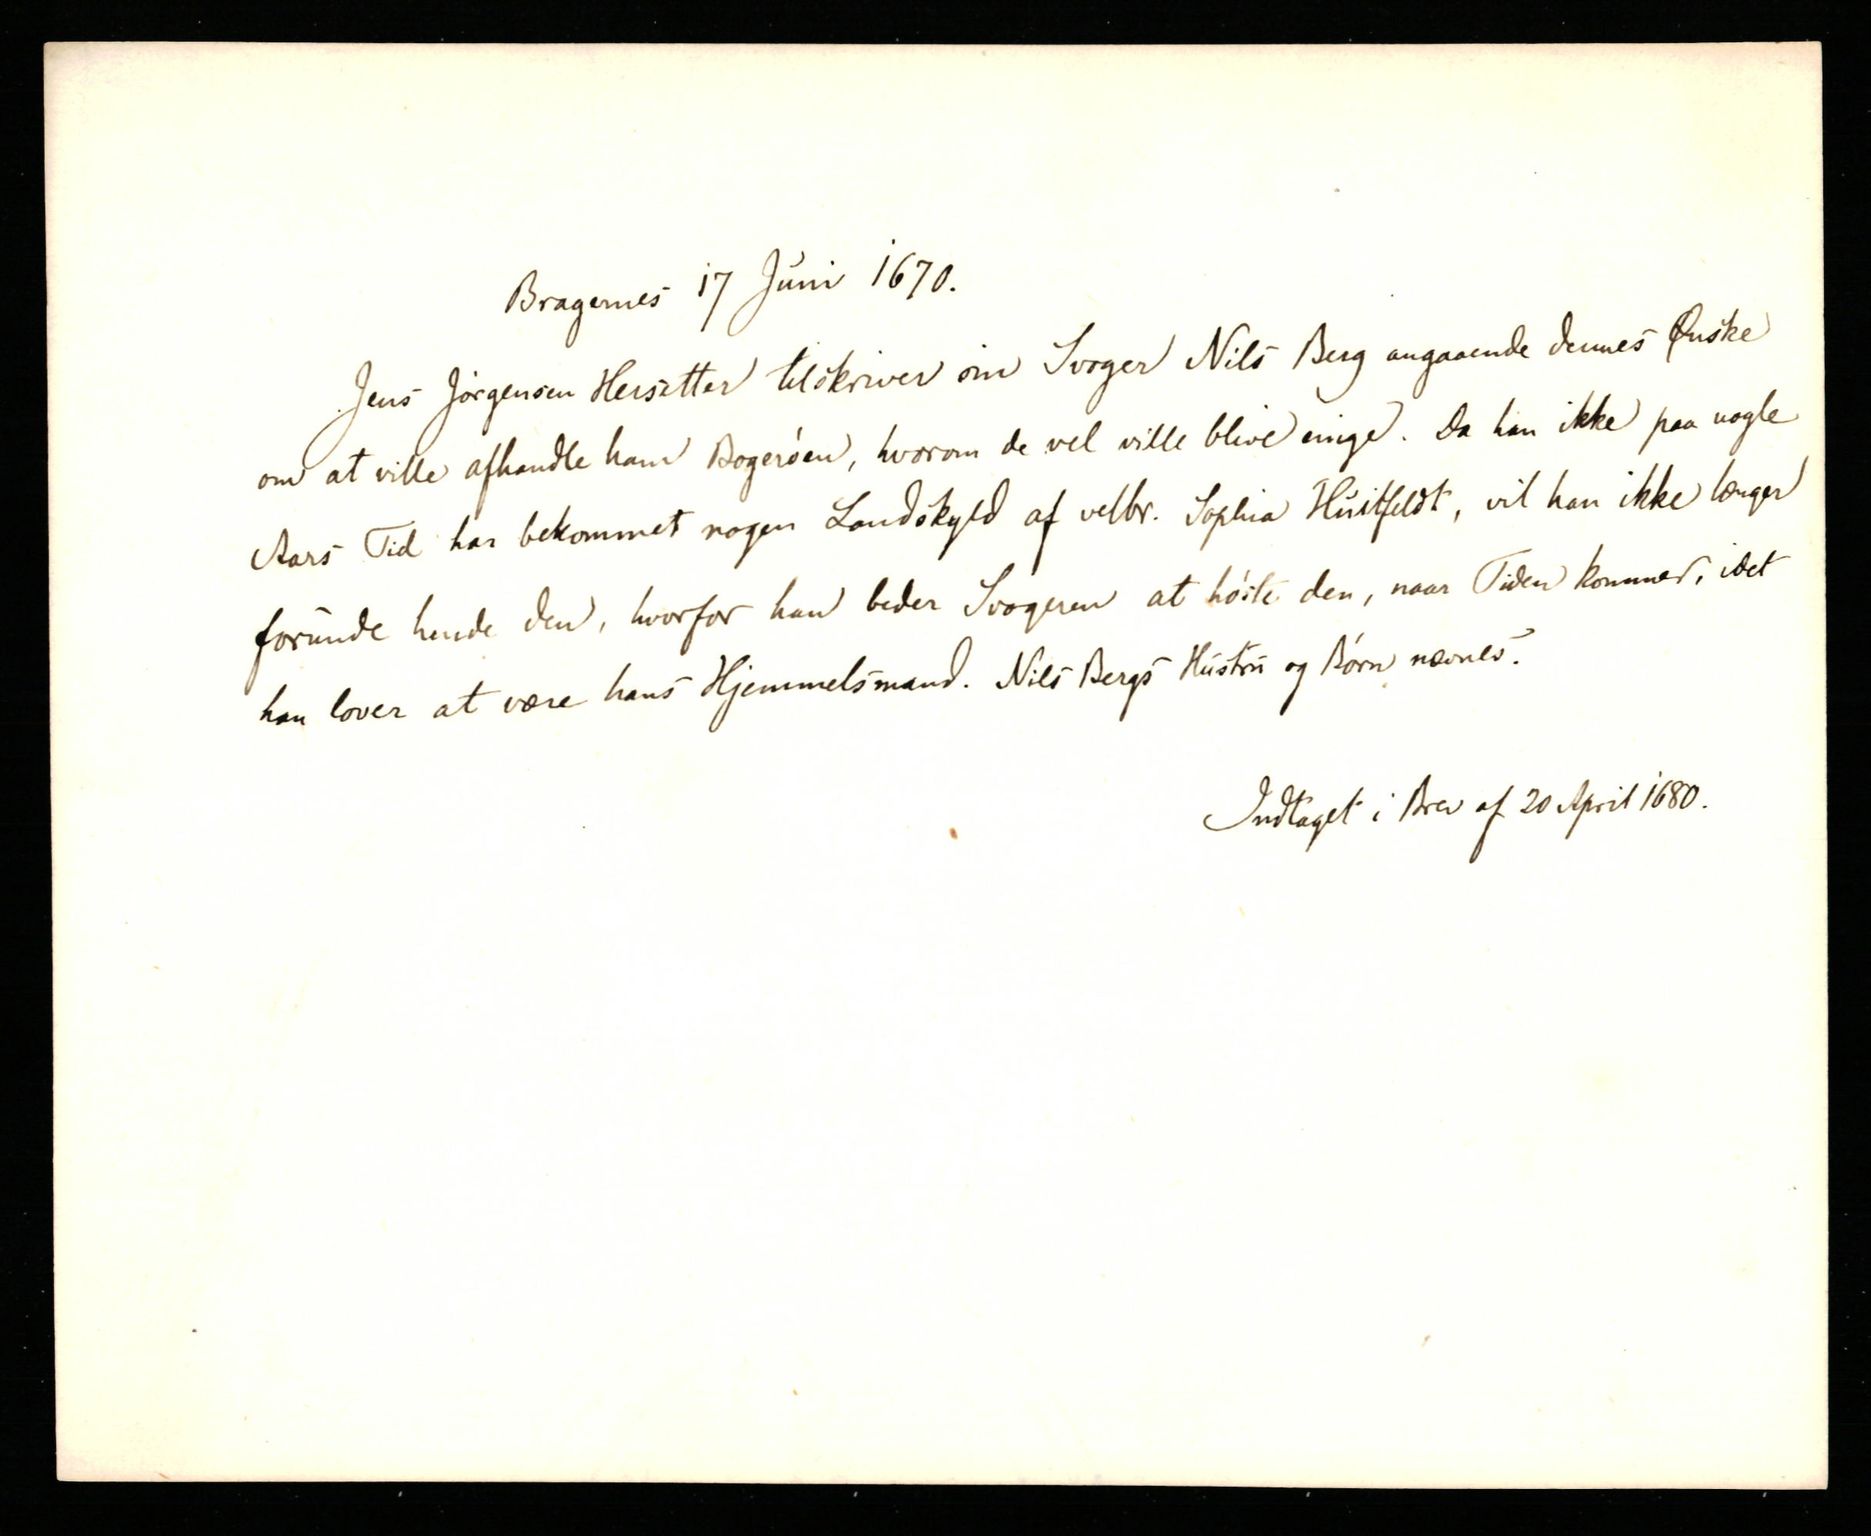 Bragernes 17 Juni 1670.
Jens Jørgensen Hersetter tilskriver sin Svoger Nils Berg angaaende dennes Ønske
om at ville afhandle ham Bogerøen, hvorom de vel ville blive enige. Da han ikke paa nogle
Aars Tid har bekommet nogen Landskyld af velbr. Sophia Huitfeldt, vil han ikke længer
forunde hende den, hvorfor han beder Svogeren at høste den, naar Tiden kommer, idet
han lover at være hans Hjemmelsmand. Nils Bergs Hustru og Børn nævnes.
Indtaget i Brev af 20 April 1680.